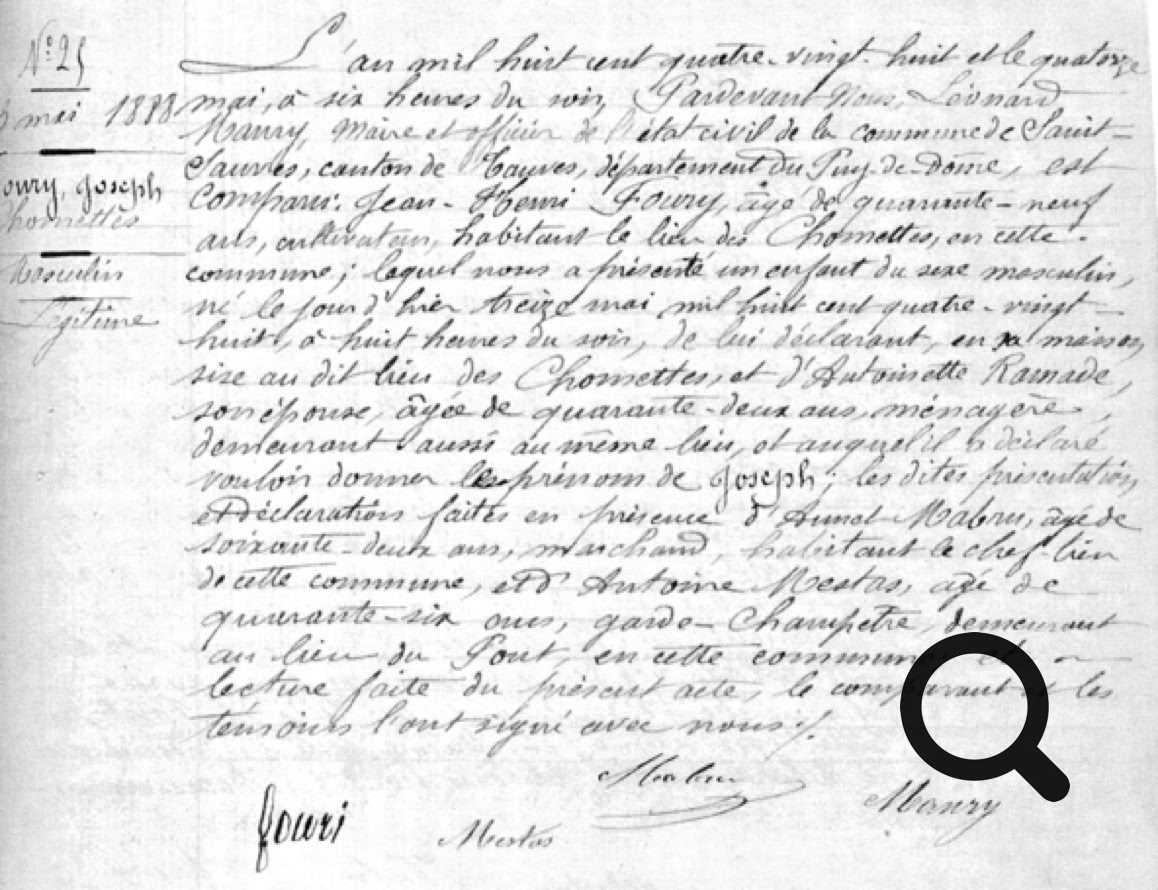 N° 25
mai 1888
oury, Joseph
Chomettes
Masculin
Légitime
L'an mil huit cent quatre-vingt-huit et le quatorze
mai, à six heures du soir, Pardevant Nous, Léonard
Maury, Maire et officier de l'état civil de la commune de Saint-
Sauves, canton de Tauves, département du Puy-de-Dôme, est
comparu: Jean-Henri Foury, âgé de quarante-neuf
ans, cultivateur, habitant le lieu des Chomettes, en cette
commune; lequel nous a présenté un enfant du sexe masculin,
né le jour d'hier treize mai mil huit cent quatre-vingt-
huit, à huit heures du soir, de lui déclarant, en sa maison,
sise au dit lieu des Chomettes, et d'Antoinette Ramade,
son épouse, âgée de quarante-deux ans, ménagère,
demeurant aussi au même lieu, et auquel il a déclaré
vouloir donner les prénoms de Joseph; les dites présentation
et déclaration faites en présence d'Annet Mabru, âgé de
soixante-deux ans, marchand, habitant le chef-lieu
de cette commune, et d'Antoine Mestas, agé de
quarante-six ans, garde-Champêtre, demeurant
au lieu du Pont, en cette commune et
lecture faite du présent acte, le comparant et les
témoins l'ont signé avec nous./.
Mabru
Maury
fouri
Mestas